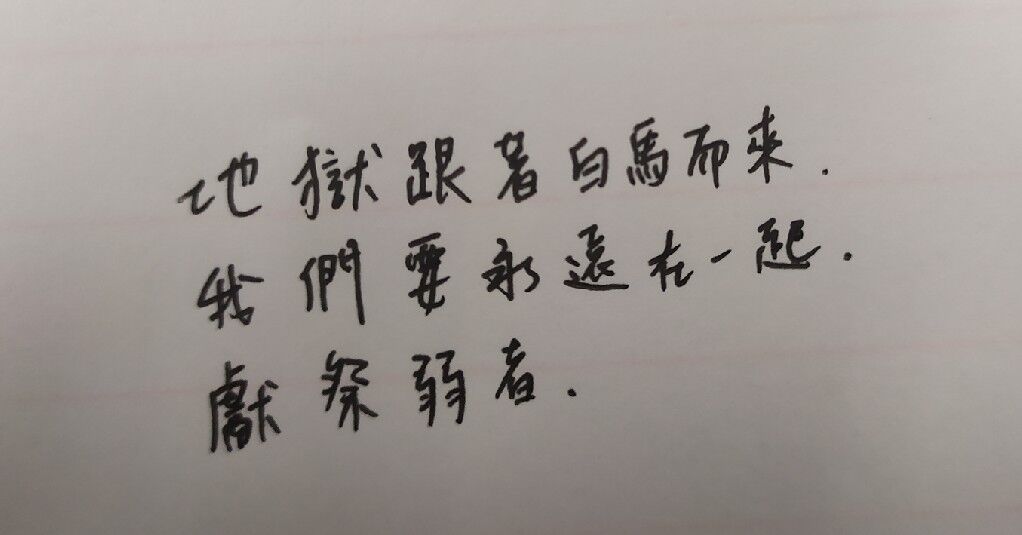 地獄跟著白馬而來.
我們要永遠在一起.
獻祭弱者.